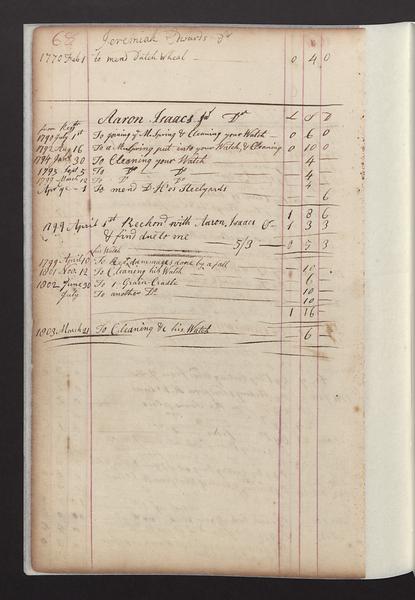 68 Jeremiah Edwards Dr
1770 Feb 1 to mend Dutch Wheal — 0 4 0
Aaron Isaacs Jr Dr L S D
from
1790 July 1st To joining yr M. Spring & Cleaning your Watch — 0 6 0
1792 Aug 16 To a M. Spring put into your Watch, & Cleaning 0 10 0
1794 Jany 30 To Cleaning your Watch — 4 —
1795 Sept 5 To Do Do — 4 —
1799 March 12 To Do Do — 4
Apr ye — 1 To mend Steelyards — 6
1 8 6
1799 April 1st Reckond with Aaron Isaacs Cr — 1 3 3
& find due to me 5/3 — 0 5 3
his Watch
1799 April 10 To dammages done by a fall — 10 —
1801 Nov. 12 To Cleaning his Watch — 6 —
1802 June 30 To 1 Grain Cradle — 10 —
July To another Do — 10 —
1 16 —
1803 March 21 To Cleaning &c his Watch — 6 —